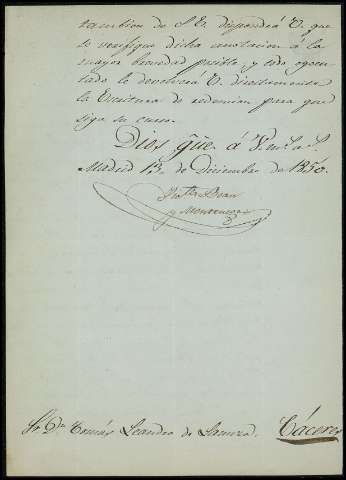 tambien de S.E. dispondrá V. que
se verifique dicha anotacion á la
mayor brevedad posible, y todo egecu-
tado lo devolverá V. directamente
la Escritura de redencion para que
siga su curso.
Dios gũe. á V. m.s a.s
Madrid 13 de Diciembre de 1850.
y
Sr. Dn. Tomás Leandro de Cáceres